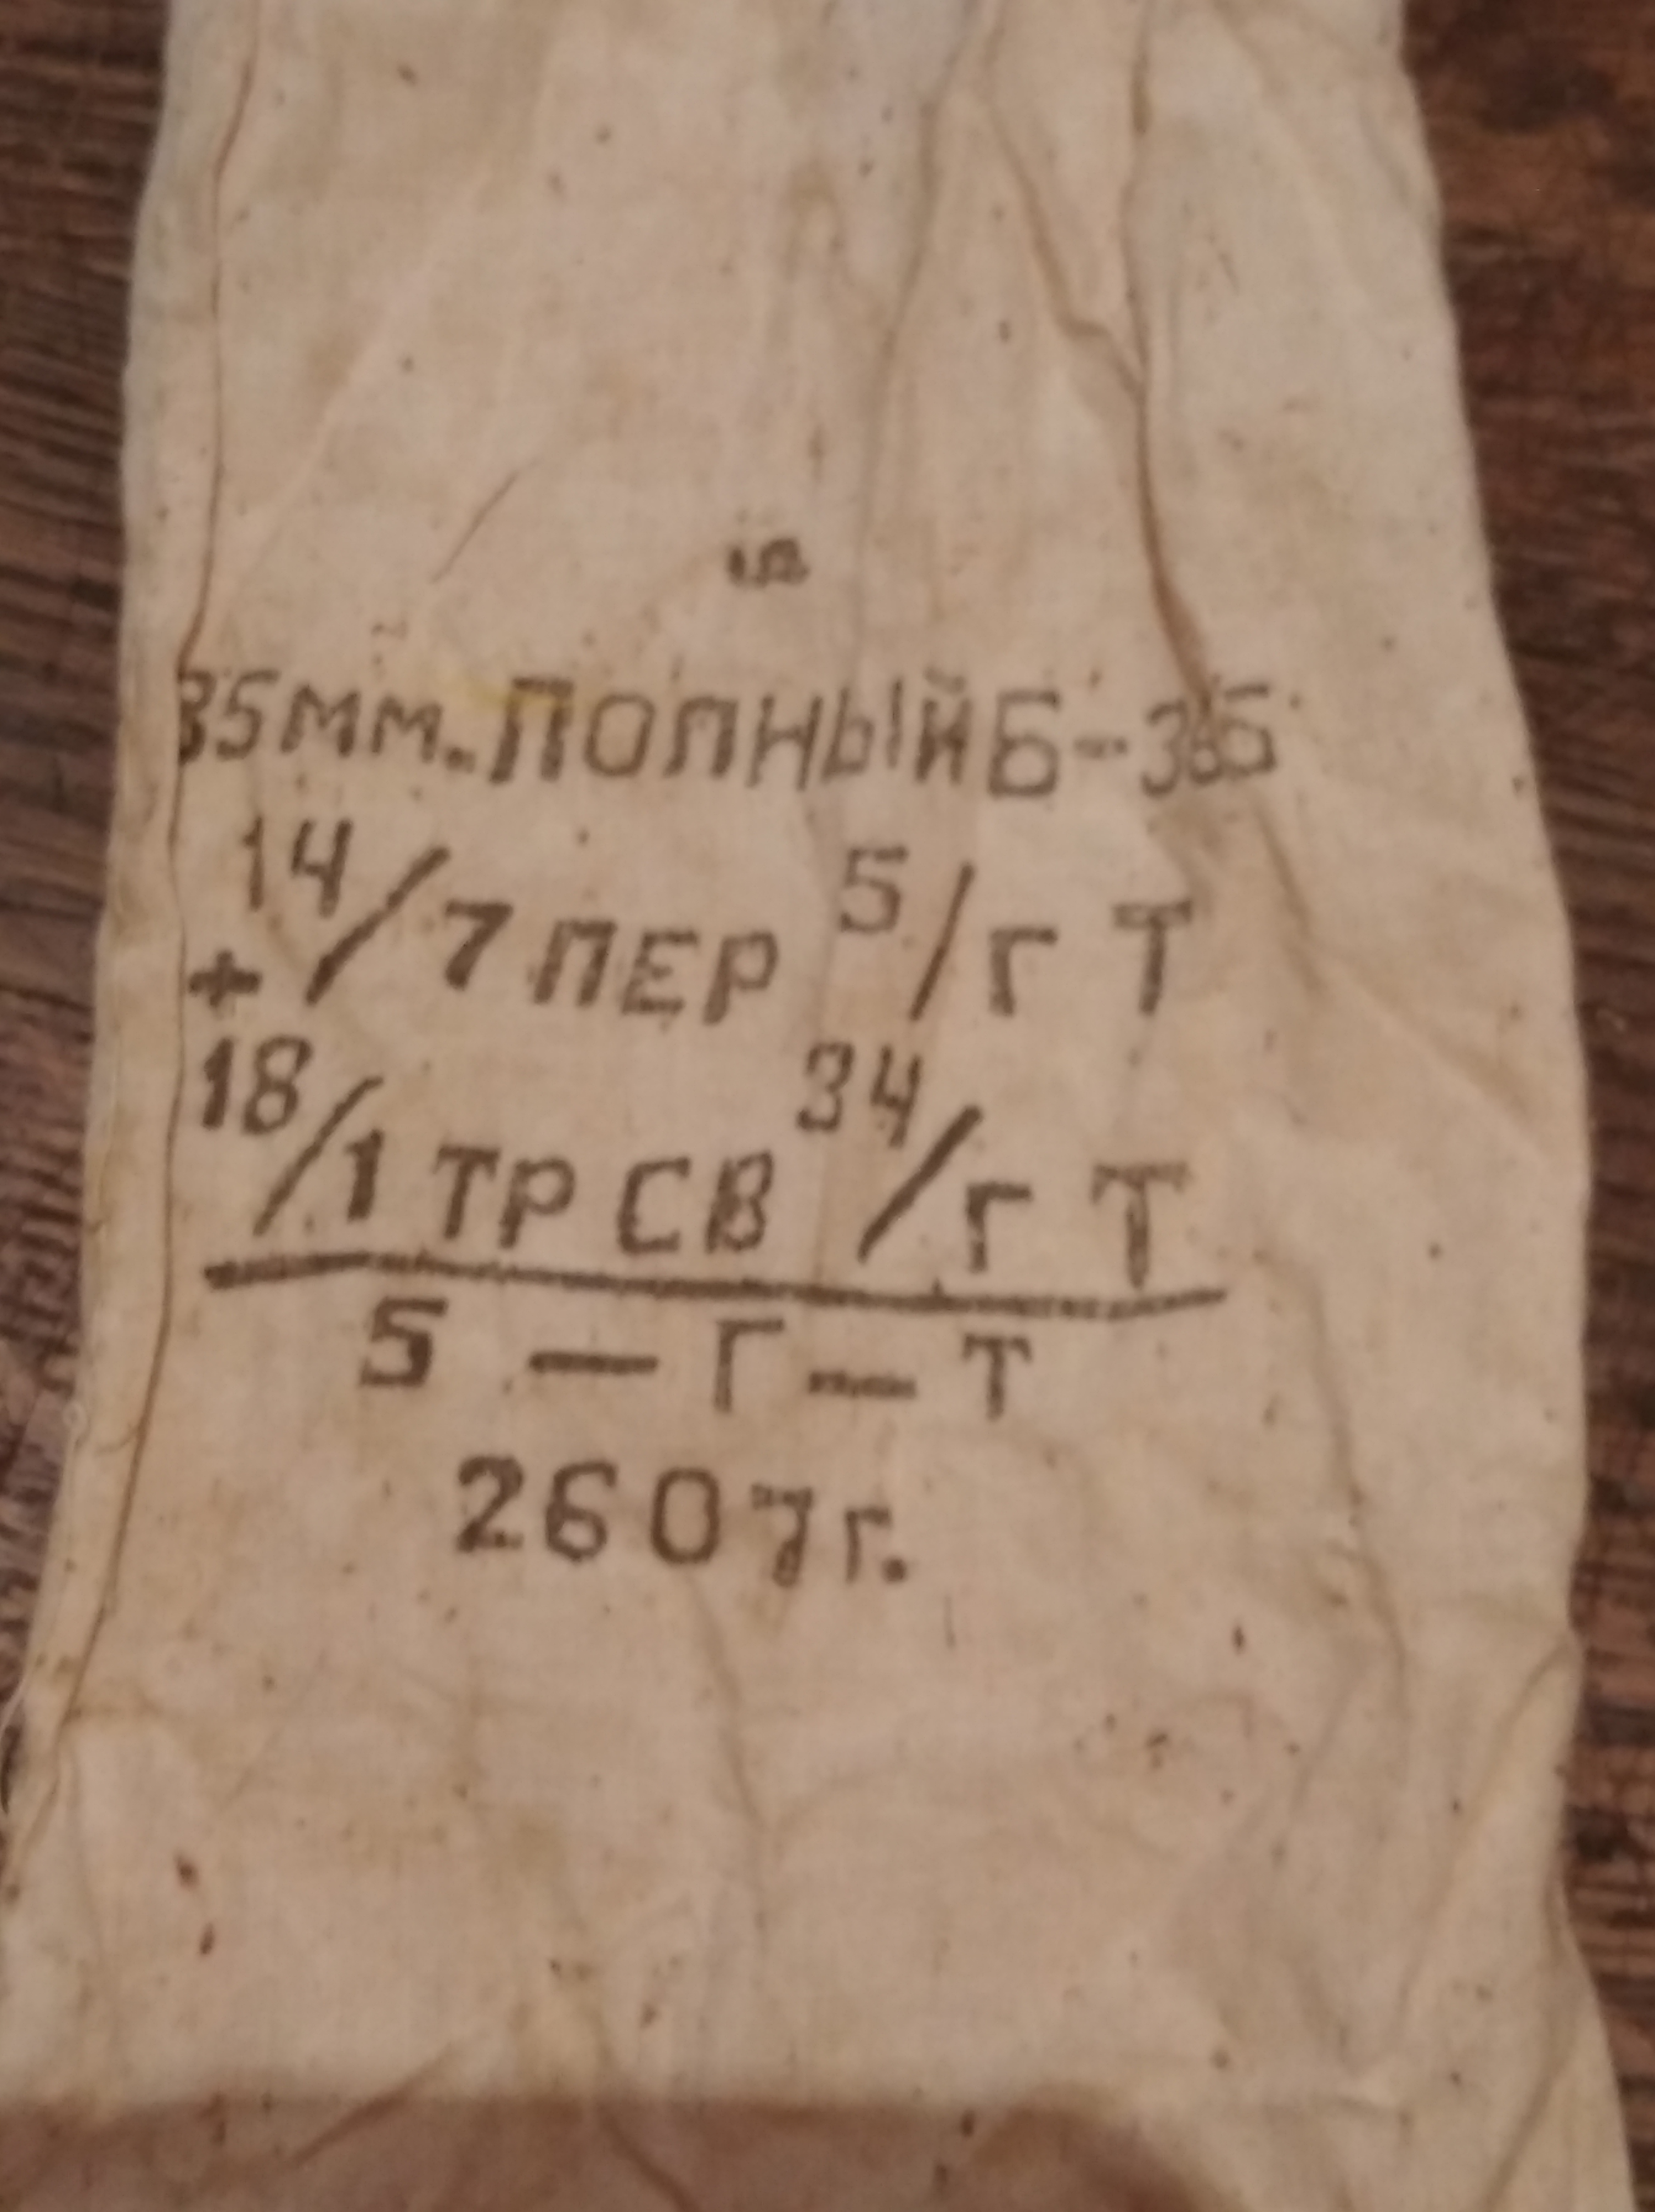 85мм. ПОЛНЫЙ Б-365
14/7 ПЕР 5/Г Т
+
18/1 ТР СВ 34/Г Т
5 — Г — Т
2607г.